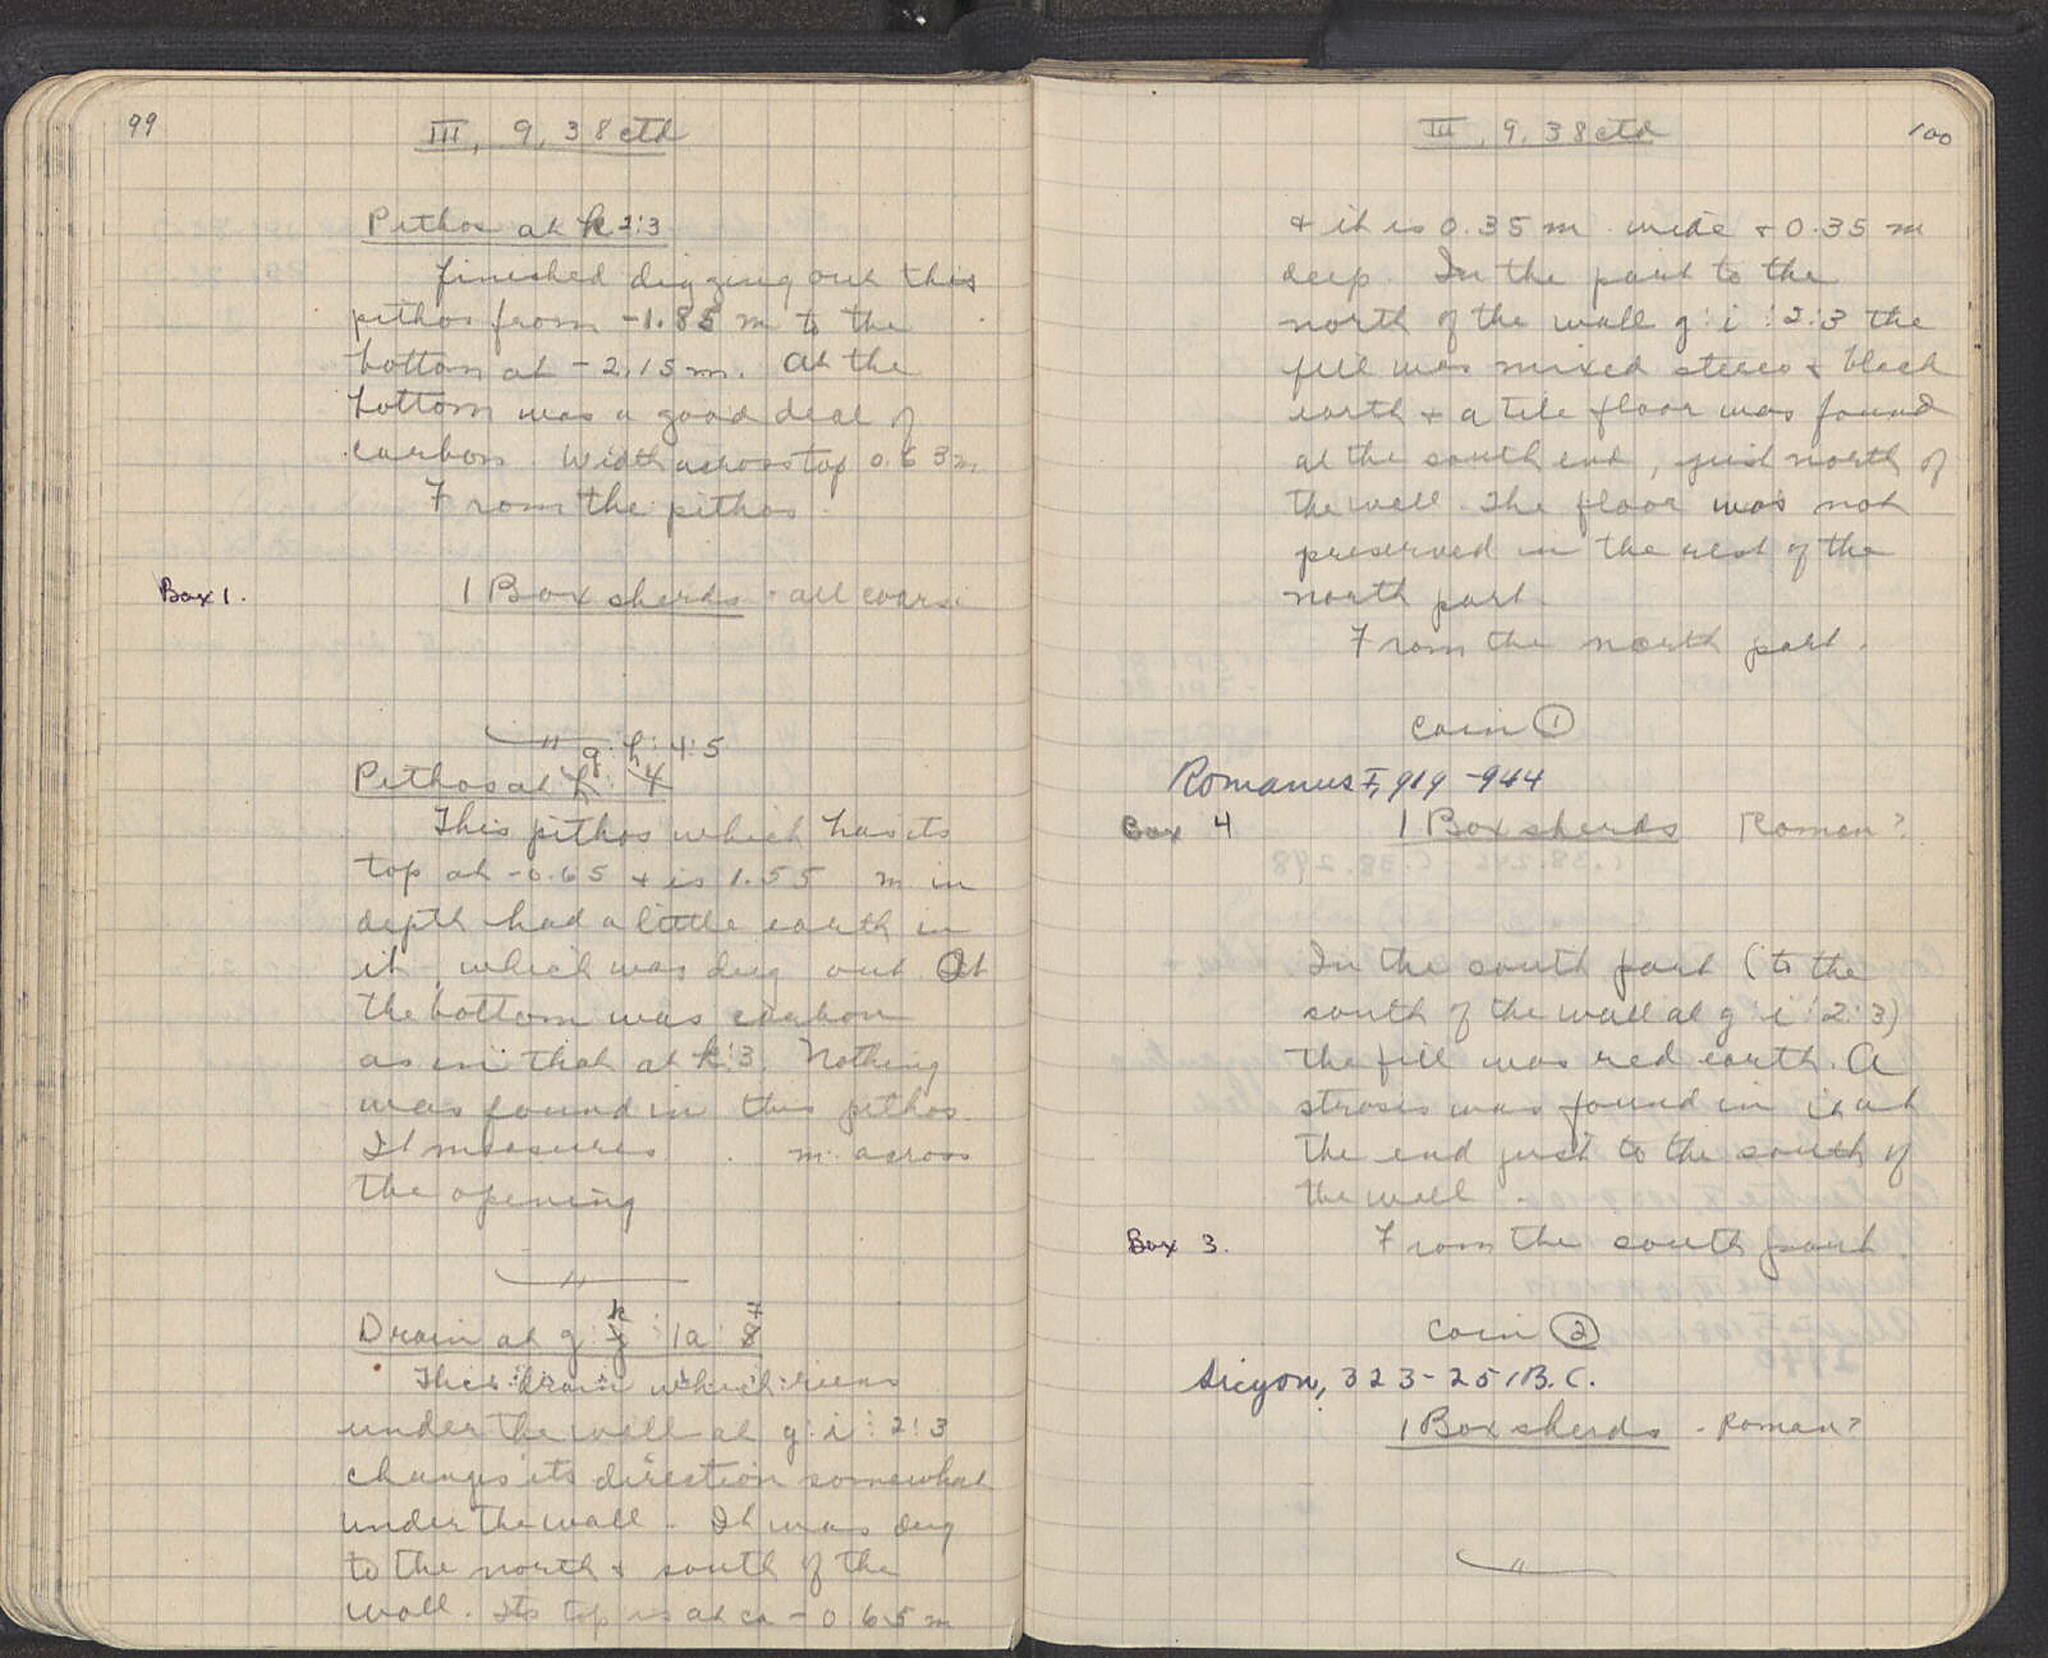 99
III, 9, 38 ctd
Pithos at k 2:3
finished digging out this
pithos from -1.85 m to the
bottom at -2.15 m. At the
bottom was a good deal of
carbon. Width across top 0.63 m
From the pithos.
Box 1. 1 Box sherds - all coarse
g: h: 4:5
Pithos at h: 4
This pithos which has its
top at -0.65 + is 1.55 m in
depth had a little earth in
it, which was dug out. At
the bottom was carbon
as in that at k:3. Nothing
was found in this pithos.
It measures . m. across
the opening
k 7
Drain at g: j : 1a: 8
This drain which runs
under the wall at g: i: 2:3
changes its direction somewhat
under the wall. It was dug
to the north + south of the
wall. Its top is at ca -0.65 m
100
III, 9, 38 ctd
+ it is 0.35 m. wide + 0.35 m
deep. In the part to the
north of the wall g: i: 2:3 the
fill was mixed stereo + black
earth + a tile floor was found
at the south end, just north of
the wall. The floor was not
preserved in the rest of the
north part.
From the north part.
Coin ①
Romanus I, 919-944
Box 4 1 Box sherds Roman?
In the south part (to the
south of the wall at g: i: 2:3)
the fill was red earth. A
strosis was found in it at
the end just to the south of
the wall.
Box 3. From the south part
Coin ②
Sicyon, 323-251 B.C.
1 Box sherds - Roman?